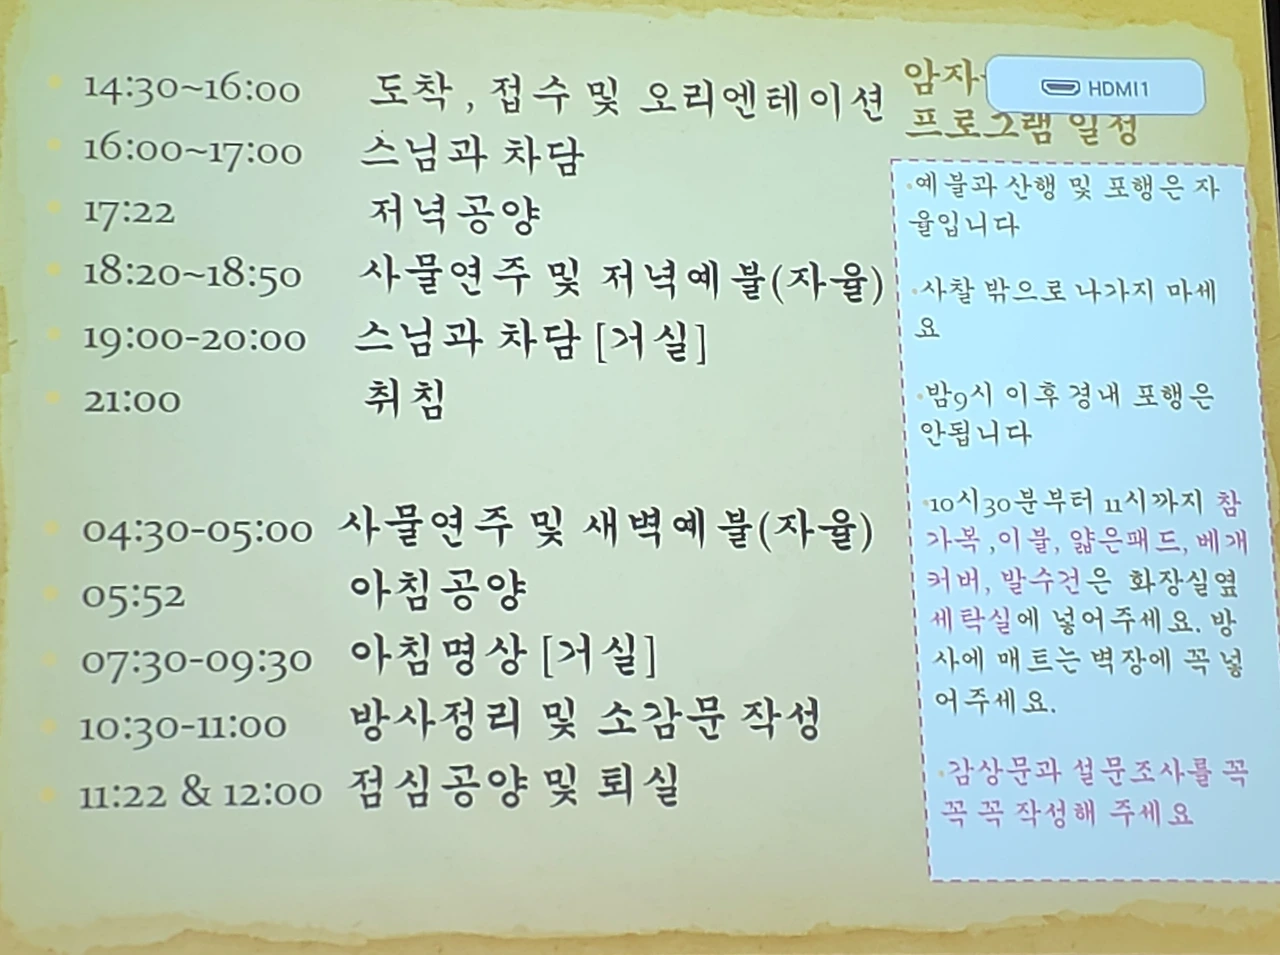 14:30~16:00 도착 , 접수 및 오리엔테이션
16:00~17:00 스님과 차담
17:22 저녁공양
18:20~18:50 사물연주 및 저녁예불(자율)
19:00-20:00 스님과 차담 [거실]
21:00 취침
04:30-05:00 사물연주 및 새벽예불(자율)
05:52 아침공양
07:30-09:30 아침명상 [거실]
10:30-11:00 방사정리 및 소감문 작성
11:22 & 12:00 점심공양 및 퇴실
암자
HDMI1
프로그램 일정
•예불과 산행 및 포행은 자
율입니다
•사찰 밖으로 나가지 마세
요
•밤9시 이후 경내 포행은
안됩니다
•10시30분부터 11시까지 참
가복 ,이불, 얇은패드, 베개
커버, 발수건은 화장실옆
세탁실에 넣어주세요. 방
사에 매트는 벽장에 꼭 넣
어주세요.
•감상문과 설문조사를 꼭
꼭 꼭 작성해 주세요